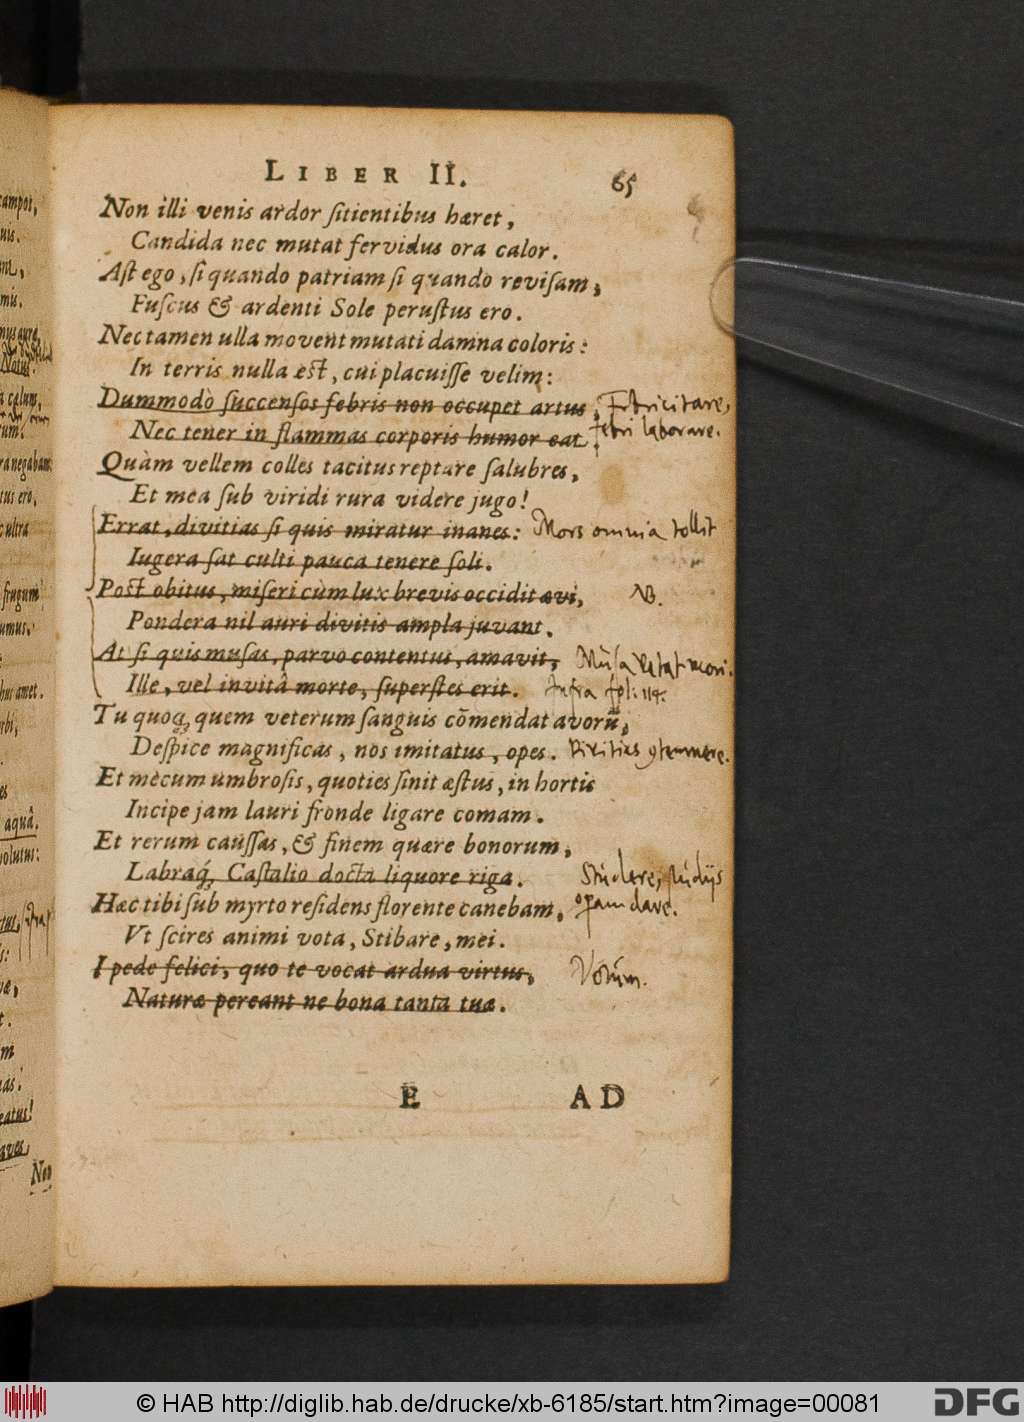 LIBER II. 65
Non illi venis ardor ſitientibus hæret,
Candida nec mutat fervidus ora calor.
Aſt ego, ſi quando patriam ſi quando reviſam,
Fuſcus & ardenti Sole peruſtus ero.
Nec tamen ulla movent mutati damna coloris:
In terris nulla æſt, cui placuiſſe velim:
Dummodò ſuccenſos febris non occupet artus, Febricitare,
Nec tener in flammas corporis humor eat. febri laborare.
Quàm vellem colles tacitus reptare ſalubres,
Et mea ſub viridi rura videre jugo!
Errat, divitias ſi quis miratur inanes: Mors omnia tollit
Iugera ſat culti pauca tenere ſoli.
Poſt obitus, miſeri cùm lux brevis occidit ævi, NB.
Pondera nil auri divitis ampla juvant.
At ſi quis muſas, parvo contentus, amavit, Muſa vetat mori.
Ille, vel invitâ morte, ſuperſtes erit. Infra fol: 114.
Tu quoq̃, quem veterum ſanguis cõmendat avorũ,
Deſpice magnificas, nos imitatus, opes. Divitias contemnere.
Et mècum umbroſis, quoties ſinit æſtus, in hortis
Incipe jam lauri fronde ligare comam.
Et rerum cauſſas, & finem quære bonorum,
Labraq́, Caſtalio docta liquore riga. Studere, ſtudijs
Hæc tibi ſub myrto reſidens florente canebam, operam dare.
Vt ſcires animi vota, Stibare, mei.
I pede felici, quo te vocat ardua virtus, Votum.
Naturæ pereant ne bona tanta tuæ.
E AD
campos,
calum,
negabam
tus ero,
ultra
frugum
amet.
aquâ.
volutus:
Nec
© HAB http://diglib.hab.de/drucke/xb-6185/start.htm?image=00081
DFG